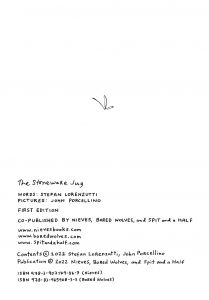 The Stoneware Jug
WORDS: STEFAN LORENZUTTI
PICTURES: JOHN PORCELLINO
FIRST EDITION
CO-PUBLISHED BY NIEVES, BORED WOLVES, and SPIT and a HALF
www.nievesbooks.com
www.boredwolves.com
www.spitandahalf.com
Contents © 2022 Stefan Lorenzutti, John Porcellino
Publication © 2022 Nieves, Bored Wolves, and Spit and a Half
ISBN (Nieves)
ISBN (Bored Wolves)